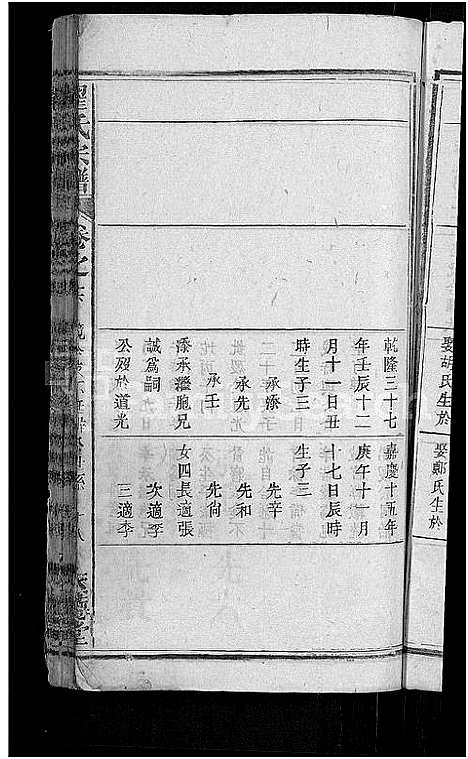 娶胡氏生於
娶鄭氏生於
乾隆三十七
年壬辰十二
月十一日丑
時生子三
承添
承先
承壬
添承繼胞兄
誠爲嗣
公歿於道光
嘉慶十五年
庚午十一月
十七日辰時
生子三
先辛
先和
先尚
女四長適張
次適李
三適李
氏宗譜
卷之